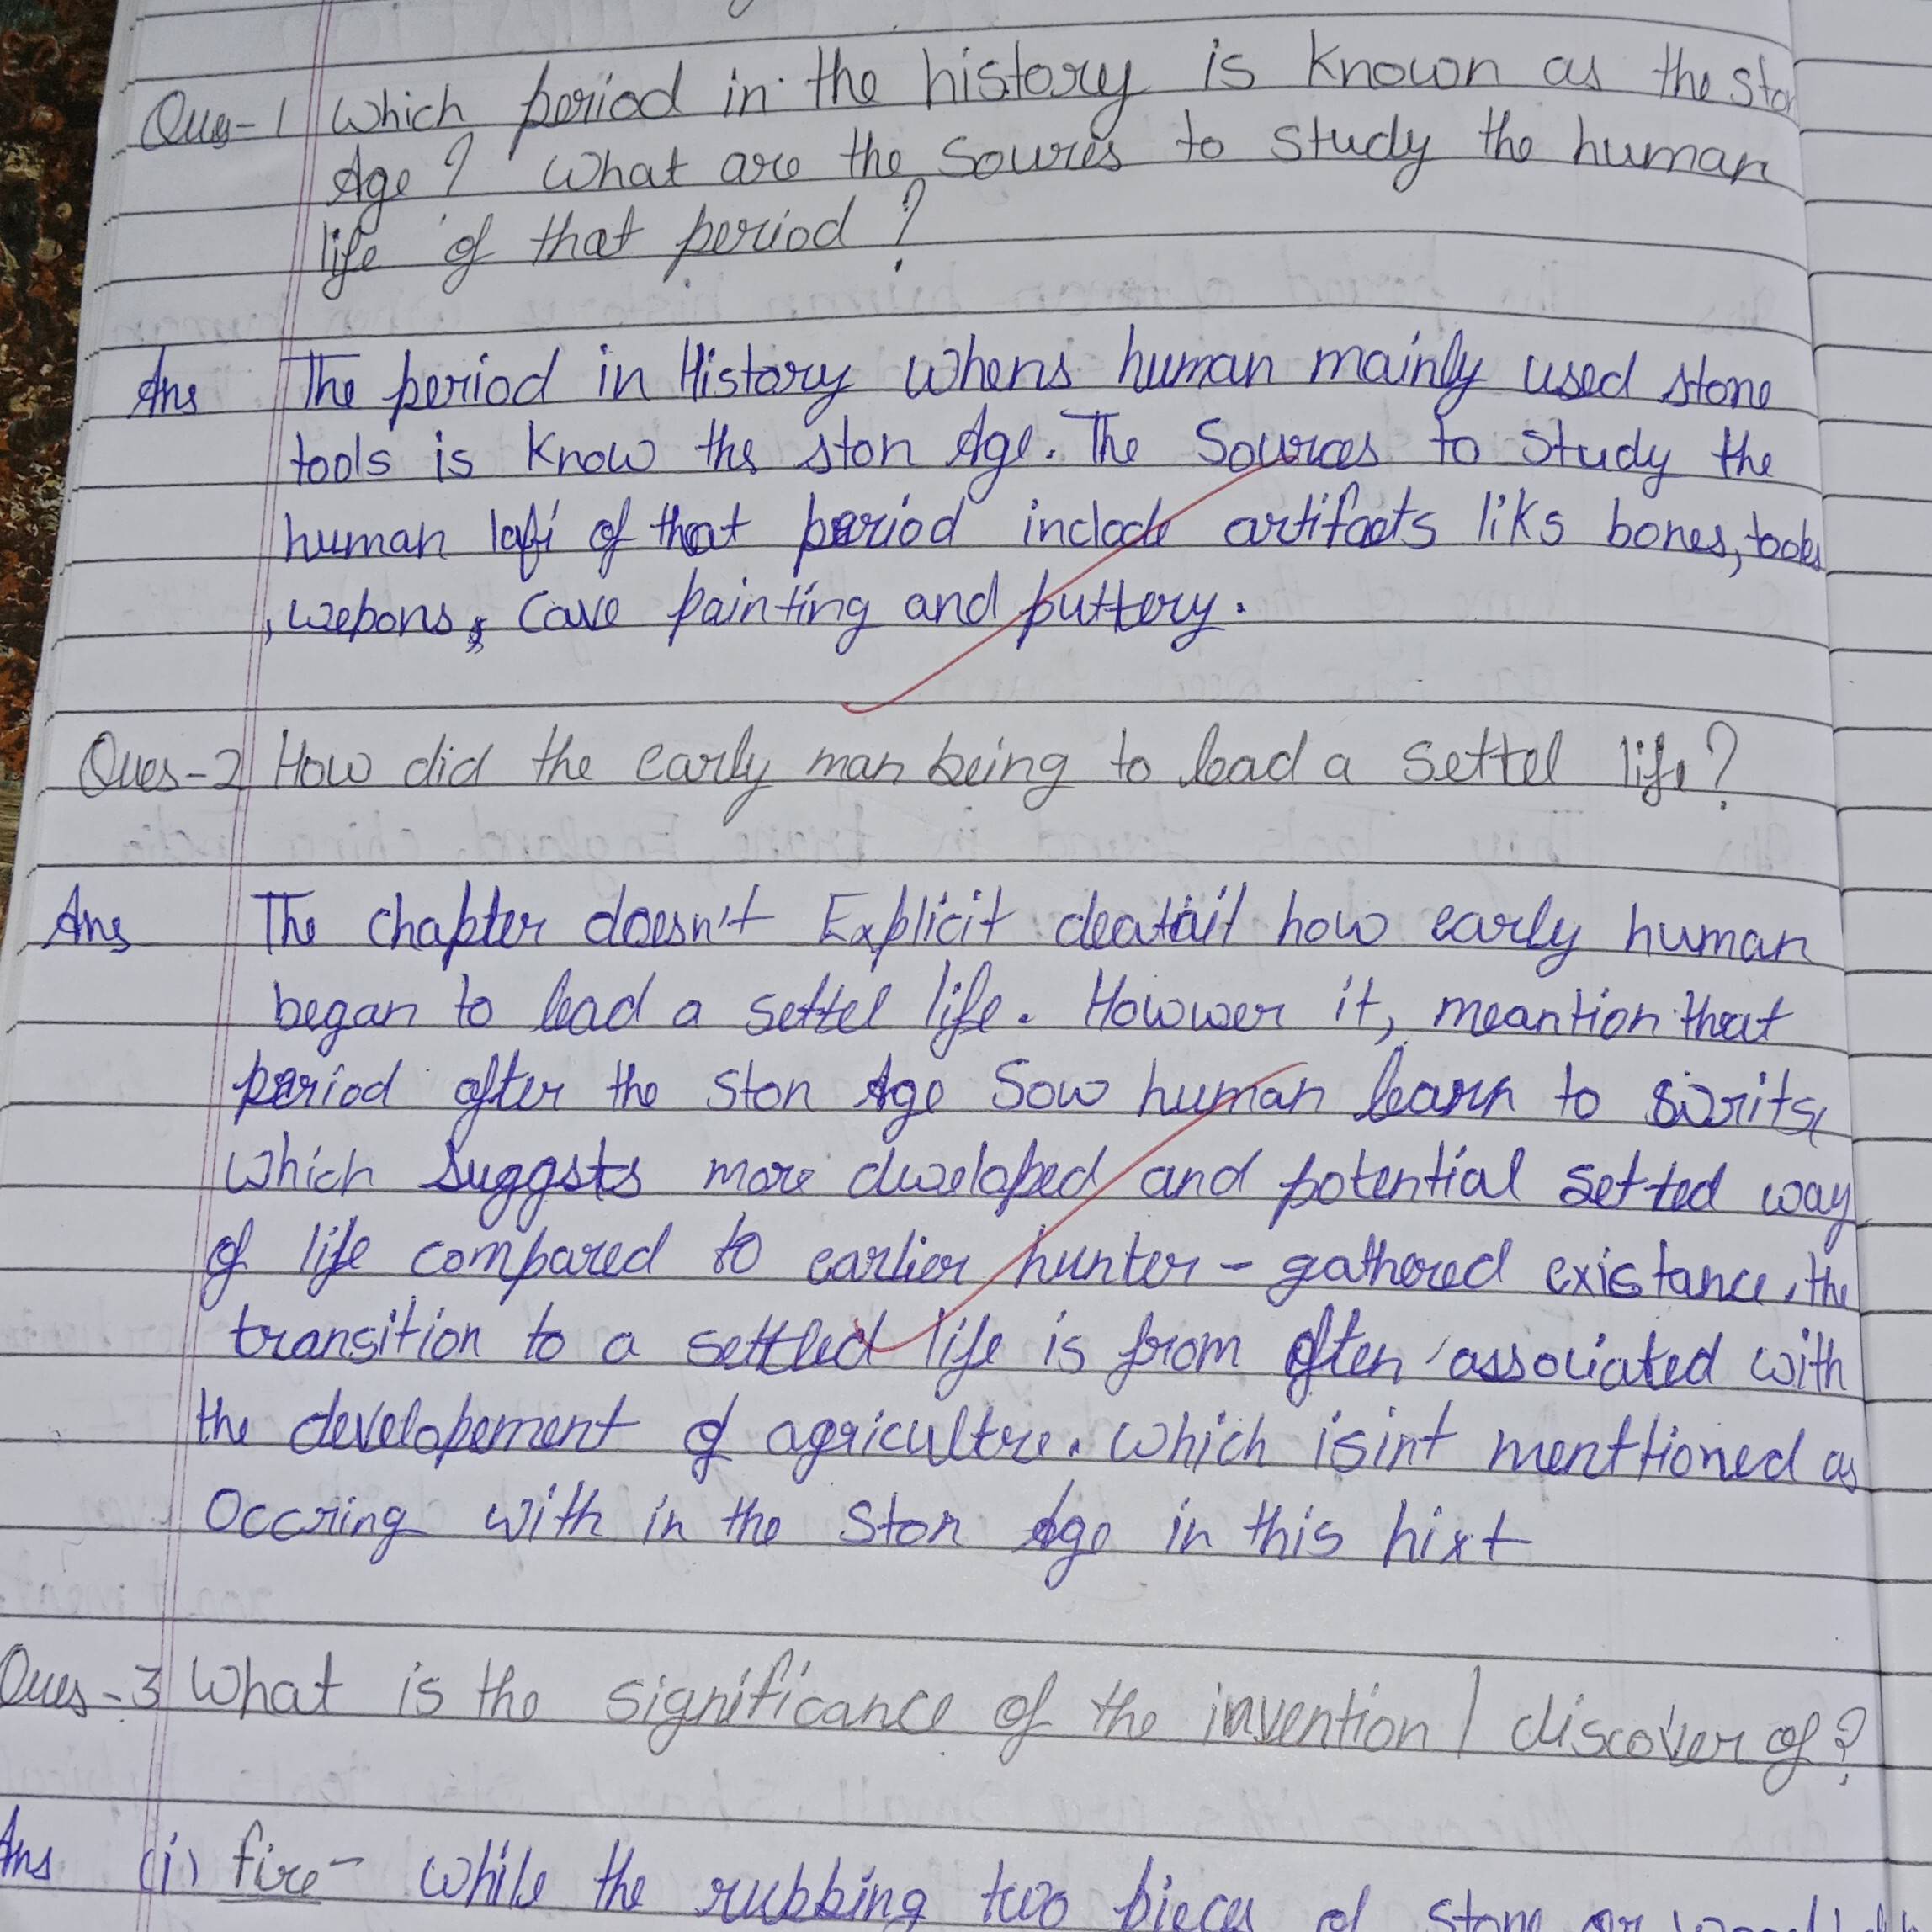 Ques-1 Which period in the history is known as the Ston
Age? What are the Soures to study the human
life of that period?
Ans The period in History whens human mainly used stone
tools is know the ston Age. The Sources to study the
human lafi of that period include artifacts liks bones, tools
, webons, Cave painting and puttery.
Ques-2 How did the early man being to lead a settel life?
Ans The chapter doesn't Explicit deatail how early human
began to lead a settel life. Howwer it, meantion that
period after the Ston Age Sow human learn to
which suggsts more dweloped and potential setted way
of life compared to earlier hunter - gathered existance. the
transition to a settled life is from often associated with
the developement of agricultre. which isint menttioned as
Occring with in the Ston Age in this hixt
Ques-3 What is the significance of the invention / discover of?
Ans (i) fire- While the rubbing two pieces of stone or